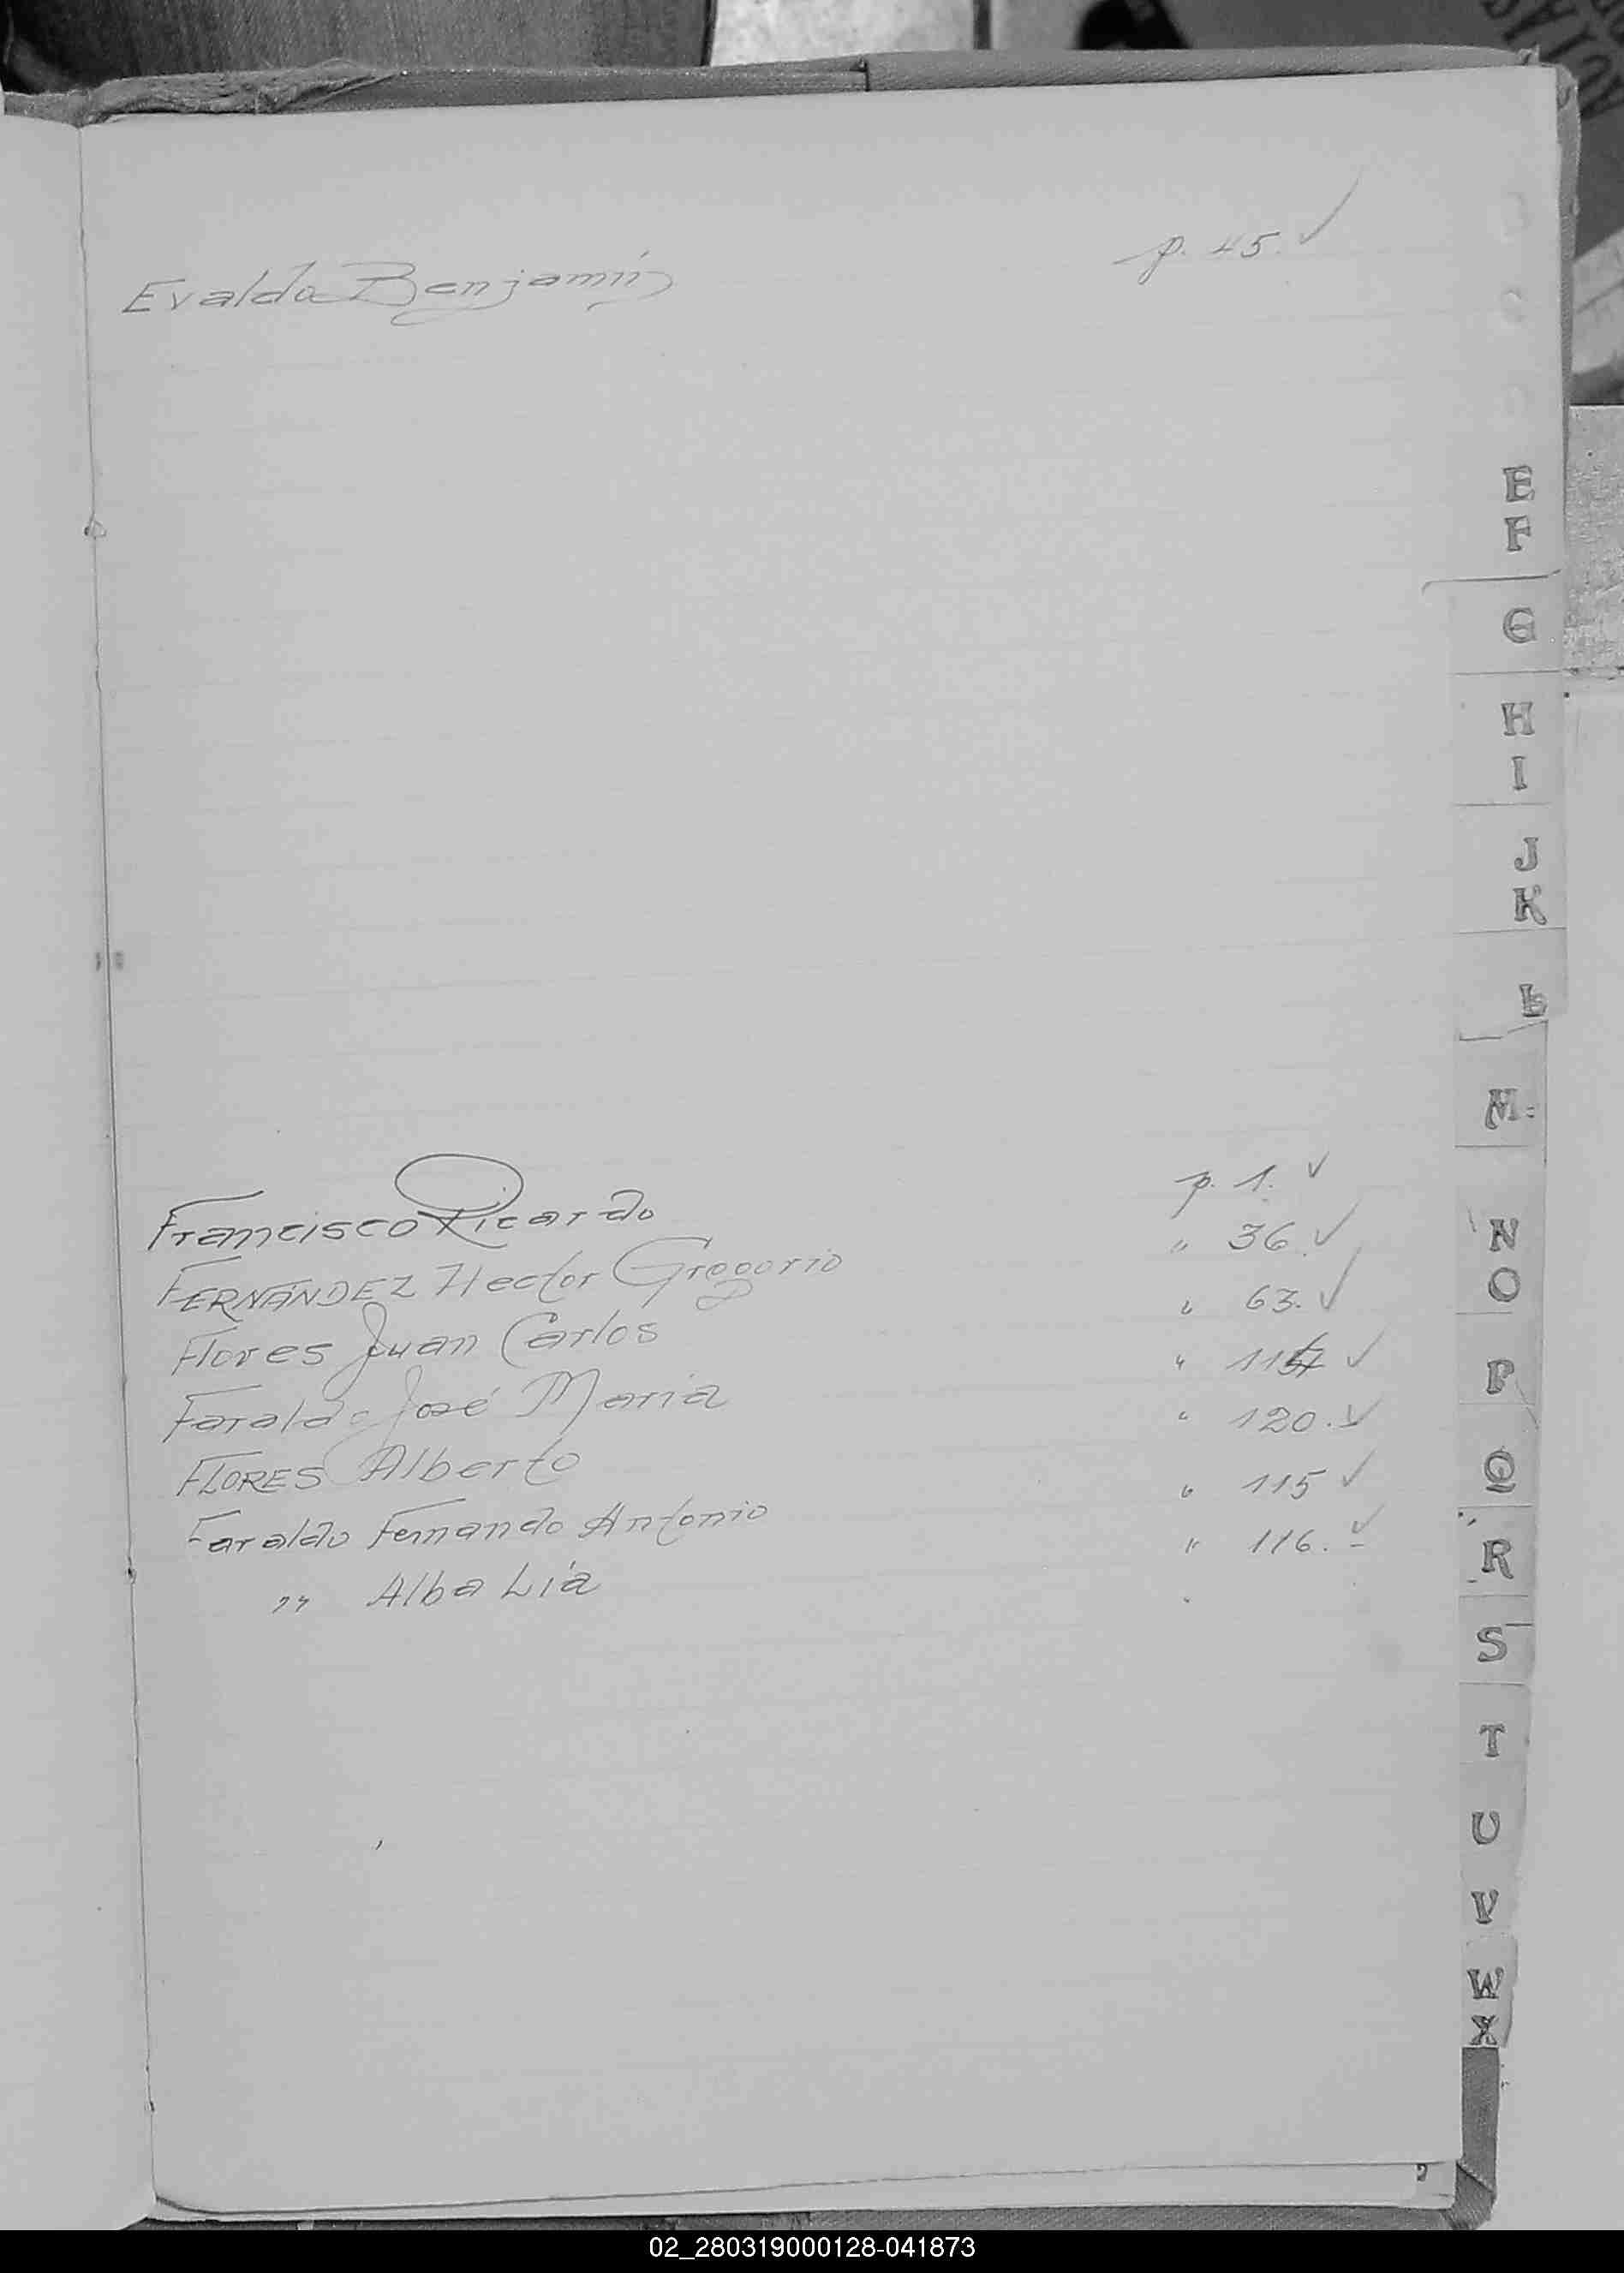 Evaldo Benjamín p. 45. ✓
E
F
G
H
I
J
K
L
M
Francisco Ricardo p. 1. ✓
FERNÁNDEZ Hector Gregorio " 36. ✓
Flores Juan Carlos " 63. ✓
Faraldo José María " 114 ✓
FLORES Alberto " 120. ✓
Faraldo Fernando Antonio " 115 ✓
" Alba Lía " 116. ✓
N
O
P
Q
R
S
T
U
V
W
X
02_280319000128-041873